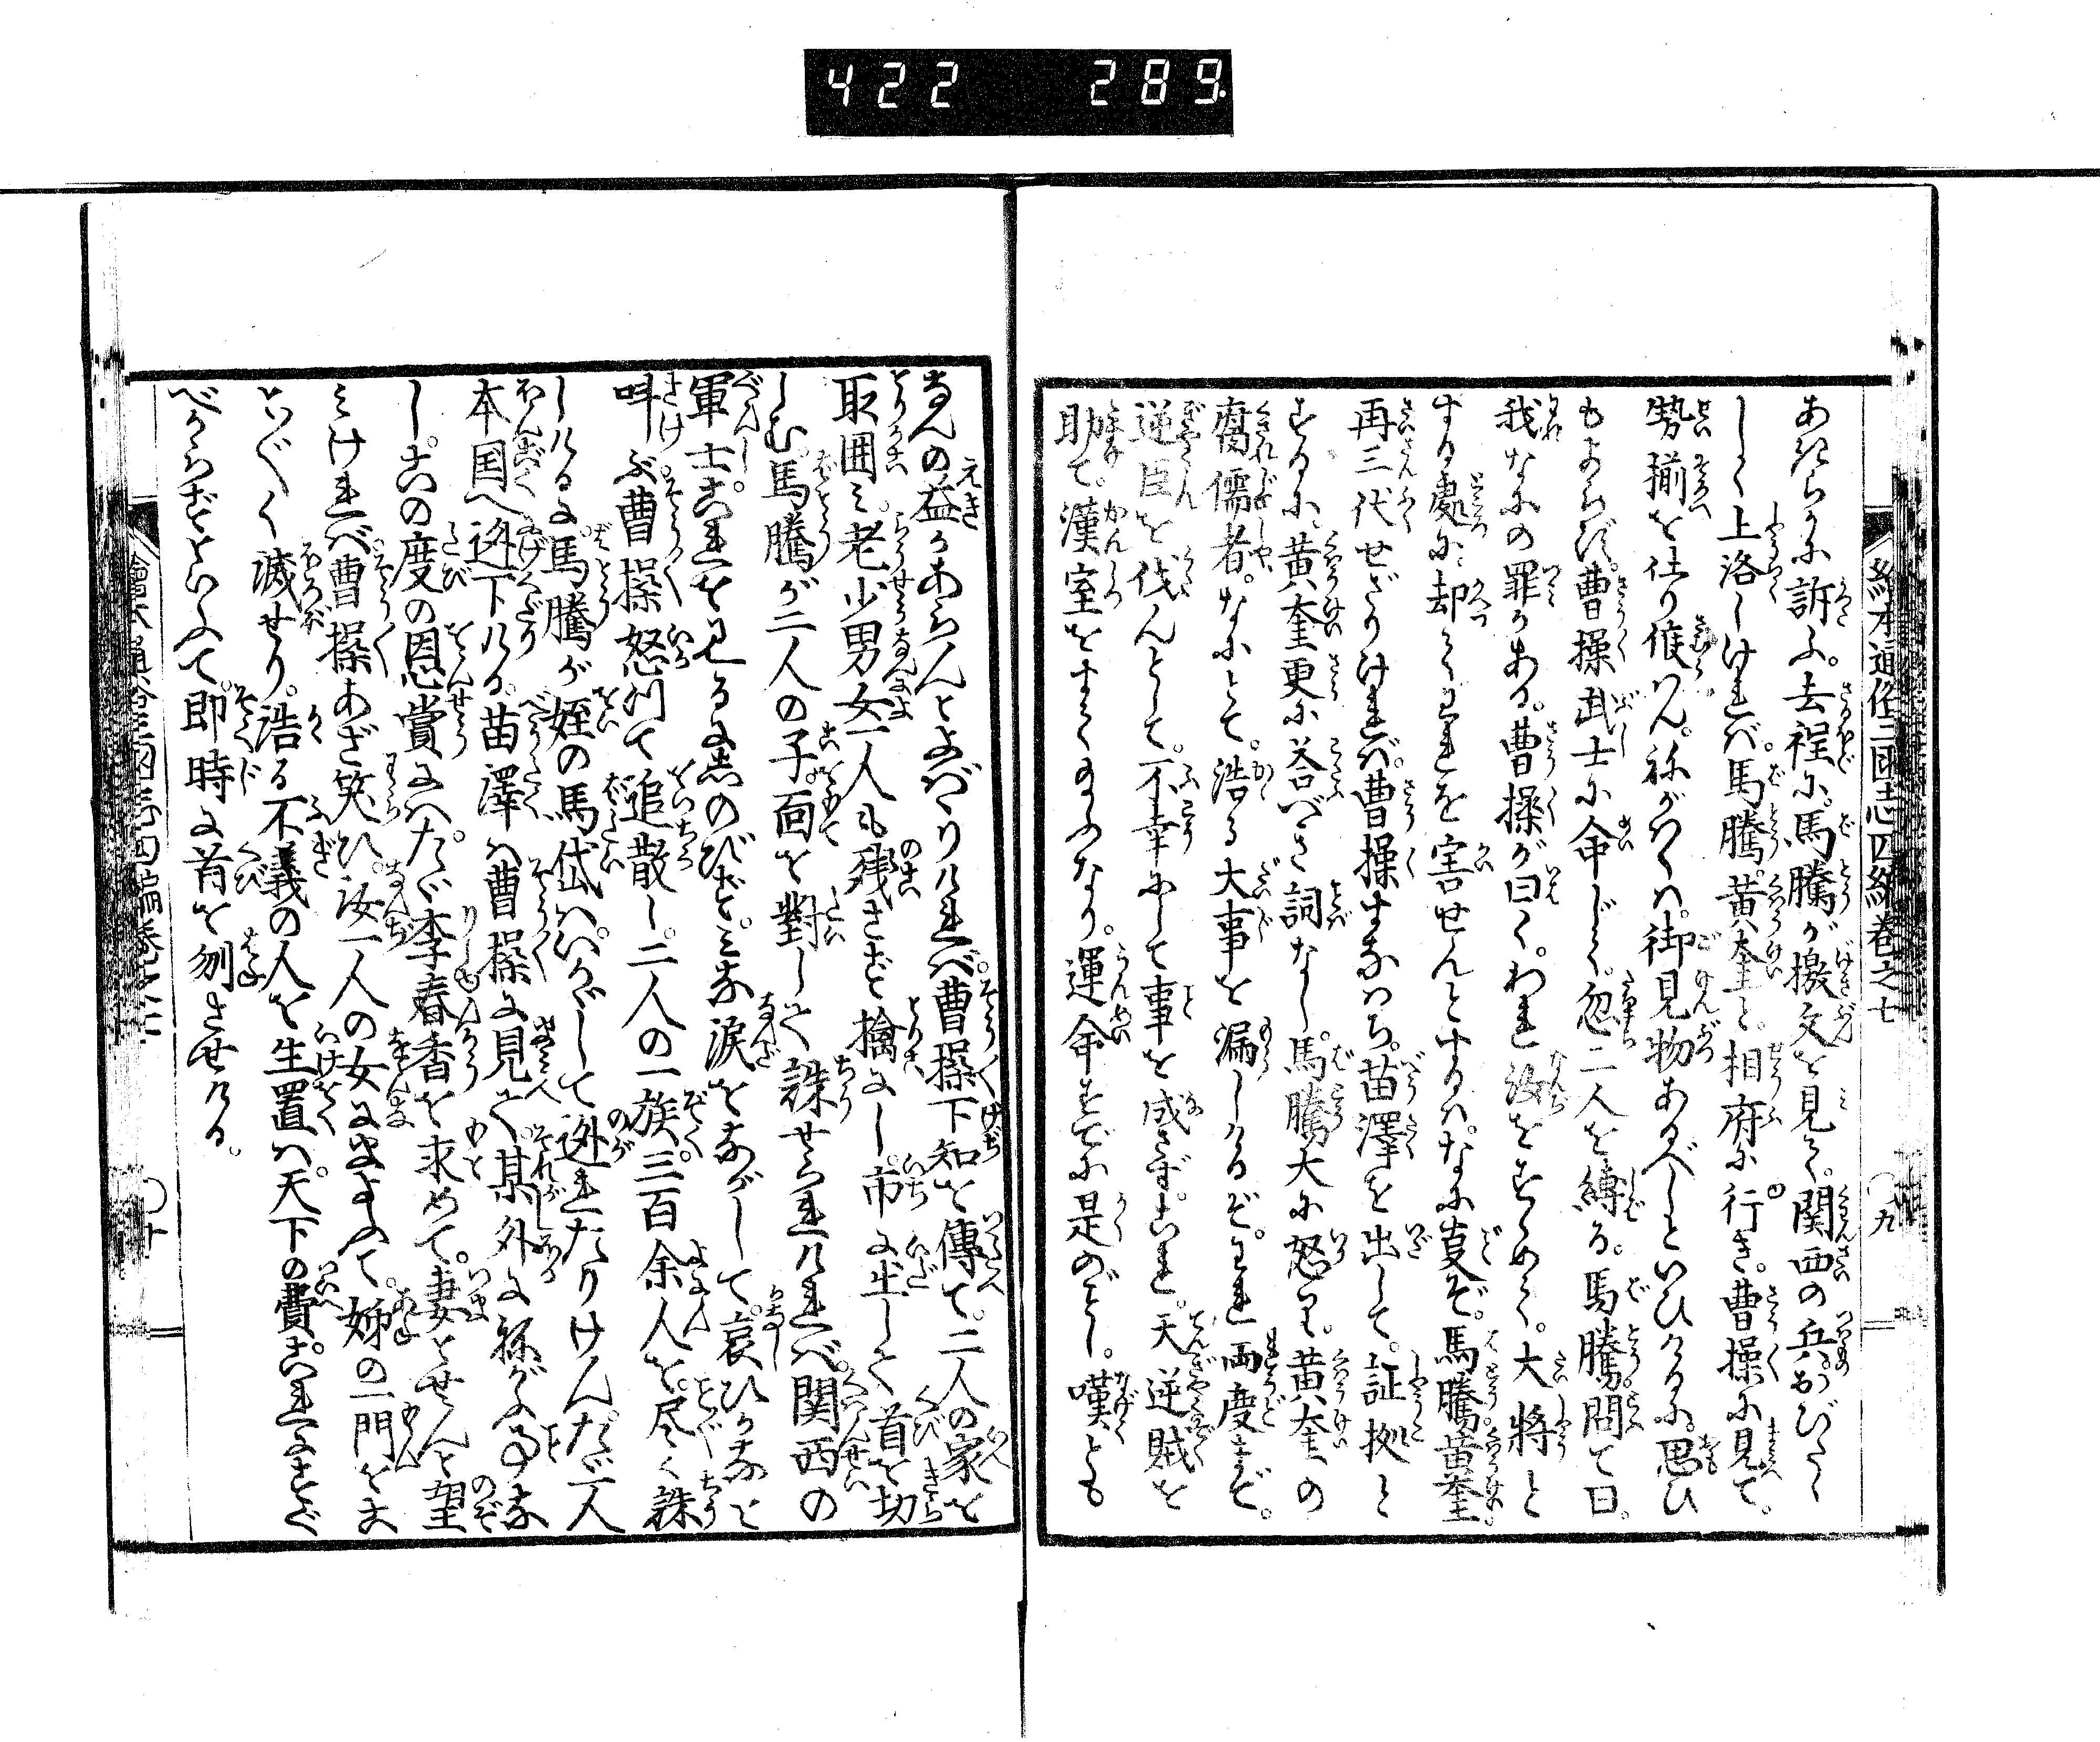 422 289
絵本通俗三国志四編巻之七 〇九
あきらかに訴ふ。去程に。馬騰が檄文を見て。関西の兵おびたゝ
しく上洛しければ。馬騰。黄奎と。相府に行き。曹操に見て。
勢揃を仕り候はん。ねがはくは。御見物あるべしといひけるに。思ひ
もよらず。曹操武士に命じて。忽二人を縛る。馬騰問て曰。
我なにの罪かある。曹操が曰く。われ汝をすゝめて。大将と
する処に。却てわれを害せんとするは。なに事ぞ。馬騰黄奎。
再三伏せざりければ。曹操すなはち。苗澤を出して。証拠と
するに。黄奎更に答べき詞なし。馬騰大に怒り。黄奎の
腐儒者。なにとて。浩る大事を漏しけるぞ。われ両度まで。
逆臣を伐んとして。不幸にして事を成さず。これ。天逆賊を
助て。漢室をすて給ふなり。運命すでに是のごとし。嘆くとも
なんの益かあらんとよばゝりければ。曹操下知を傳て。二人の家を
取囲み。老少男女一人も残さず擒にし。市に出して首を切
しむ。馬騰が二人の子。面を對して誅せられければ。関西の
軍士。これを見るに忍のびず。みな涙をながして。哀ひかなを
叫ぶ。曹操怒つて追散し。二人の一族。三百余人を。尽く誅
しけるに。馬騰が姪の馬岱は。いかゞして迯れたりけん。たゞ一人
本国へ迯下りける。苗澤は曹操に見て。某外にねがふ事な
し。此の度の恩賞には。たゞ李春香を求めて。妻とせんと望
みければ。曹操あざ笑ひ。汝一人の女にまよふて。姉の一門をま
でことごとく滅せり。浩る不義の人を生置は。天下の費。これにすぐ
べからずといふて。即時に首を刎させける。
繪本通俗三國志四編巻之七 〇十